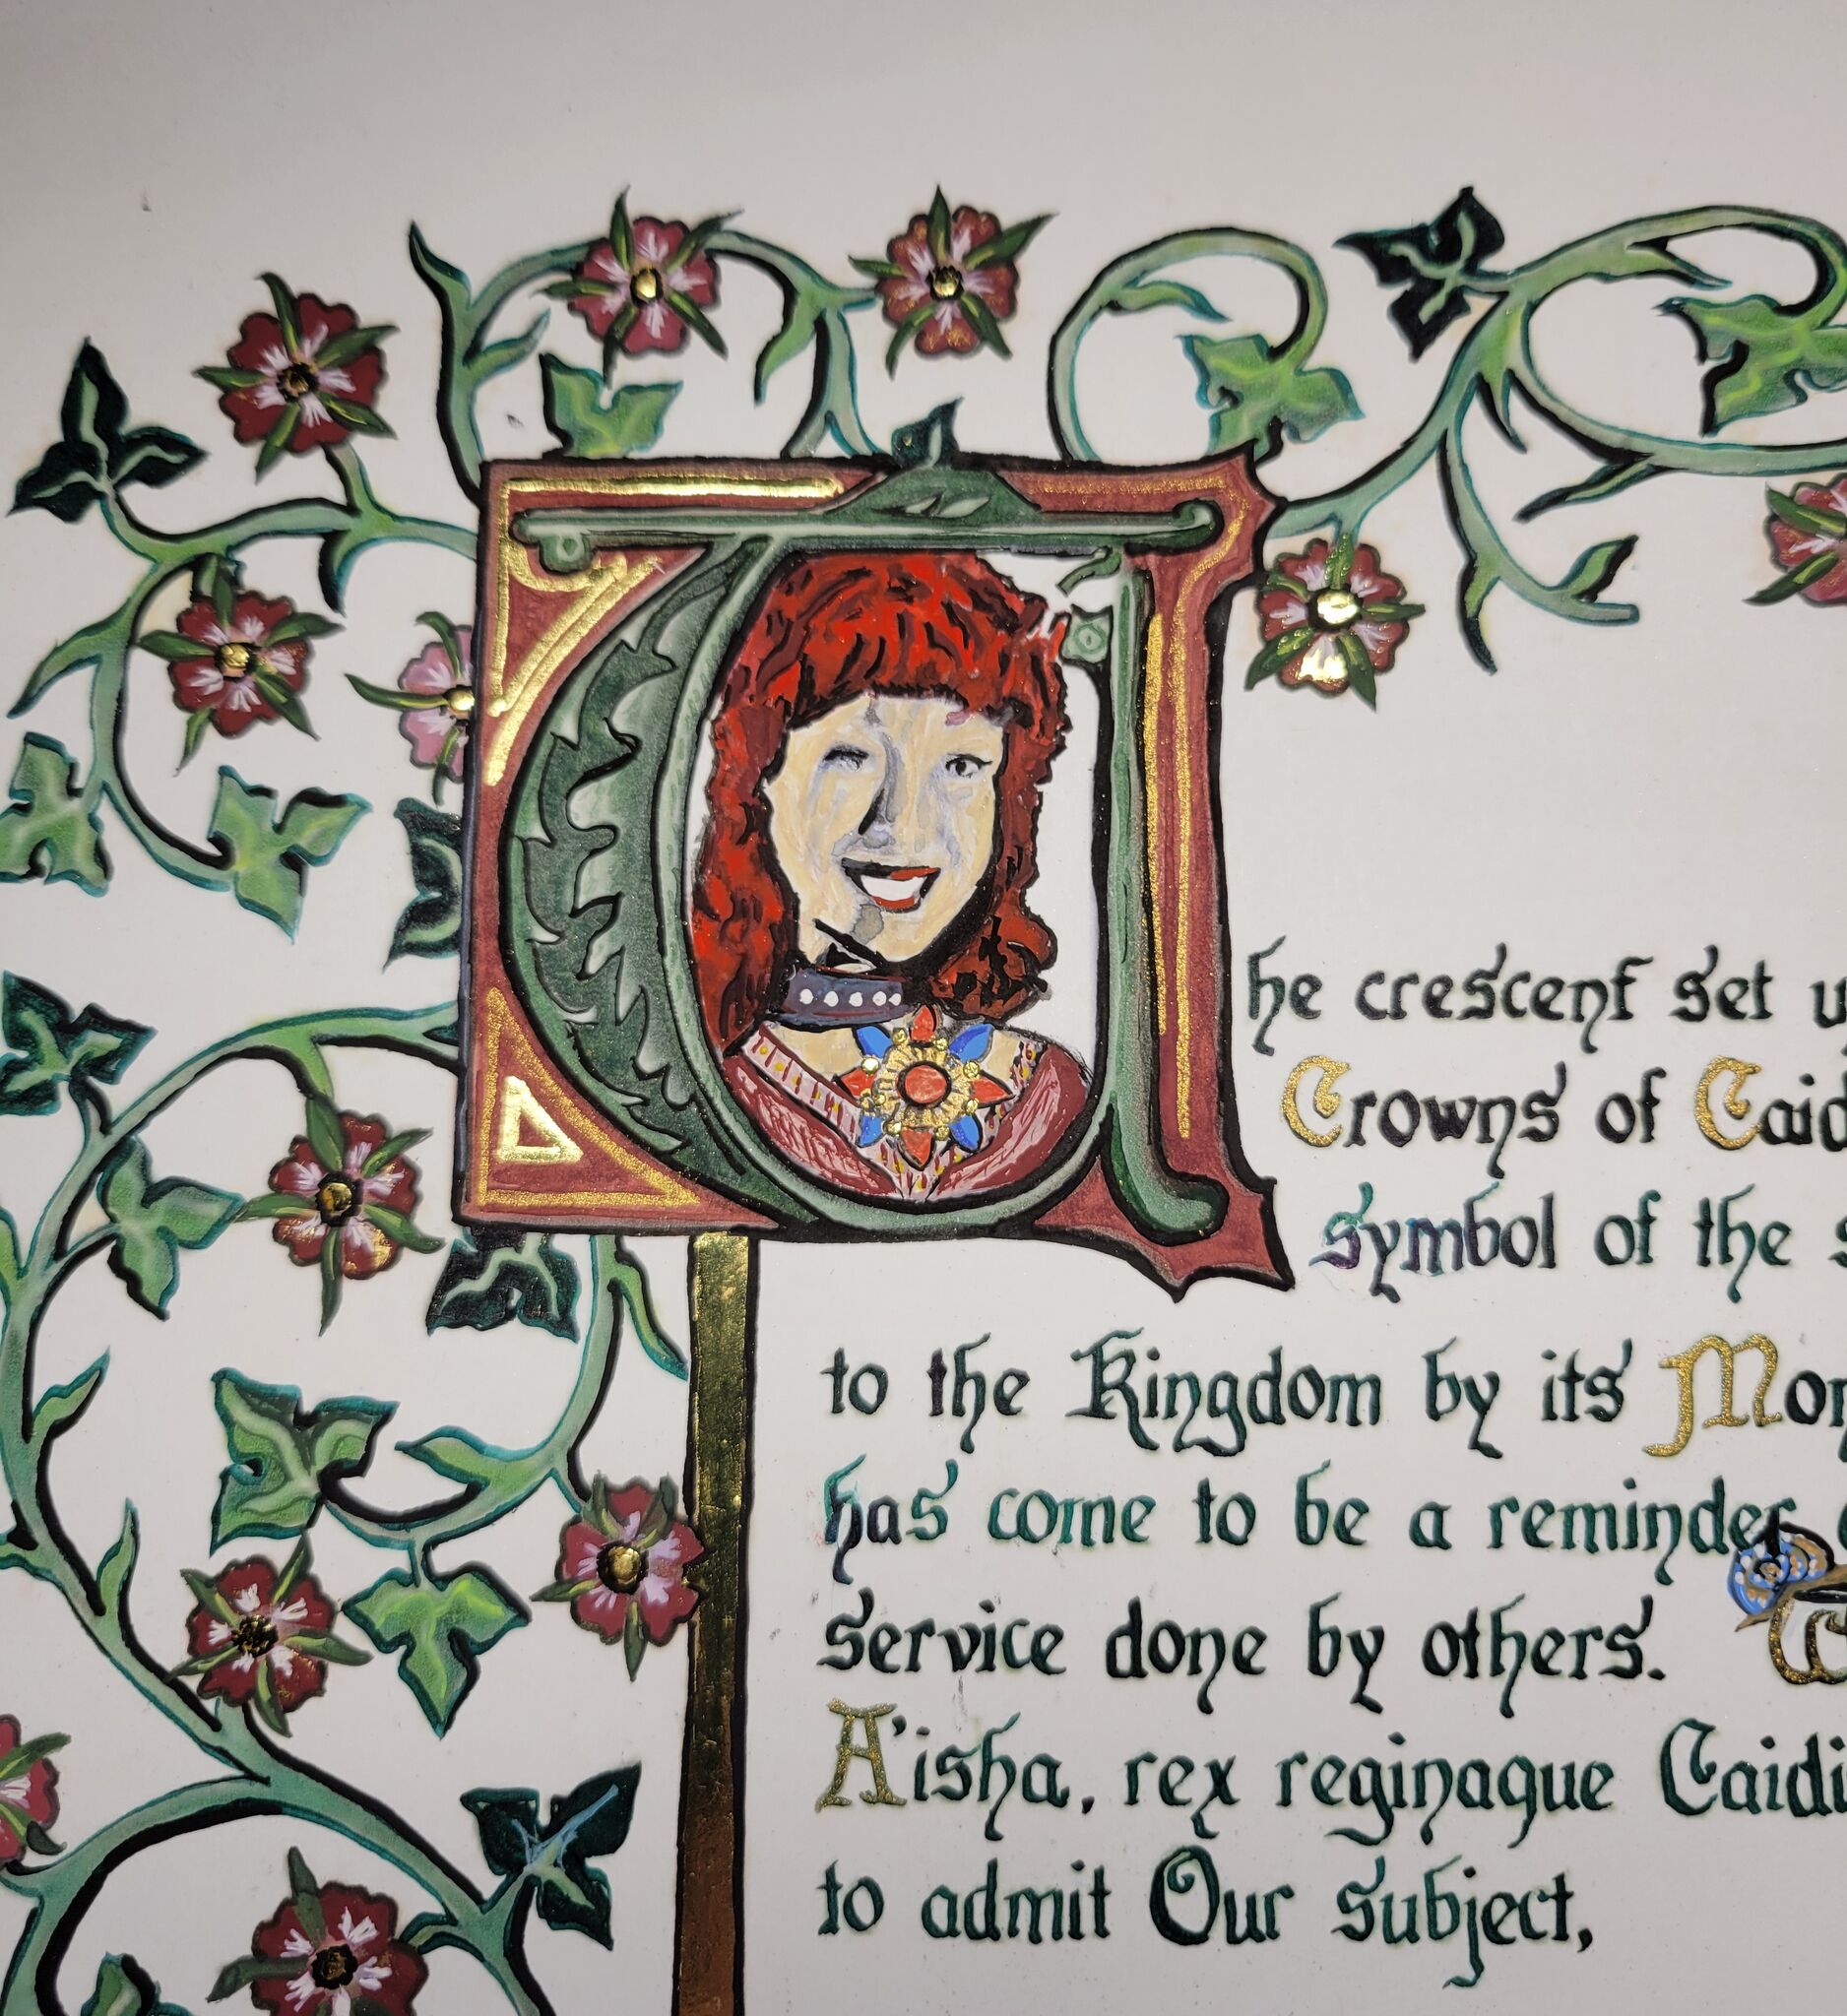 The crescent set
Crowns of
symbol of the
to the Kingdom by its
has come to be a reminder
service done by others.
A'isha, rex reginaque
to admit Our subject,